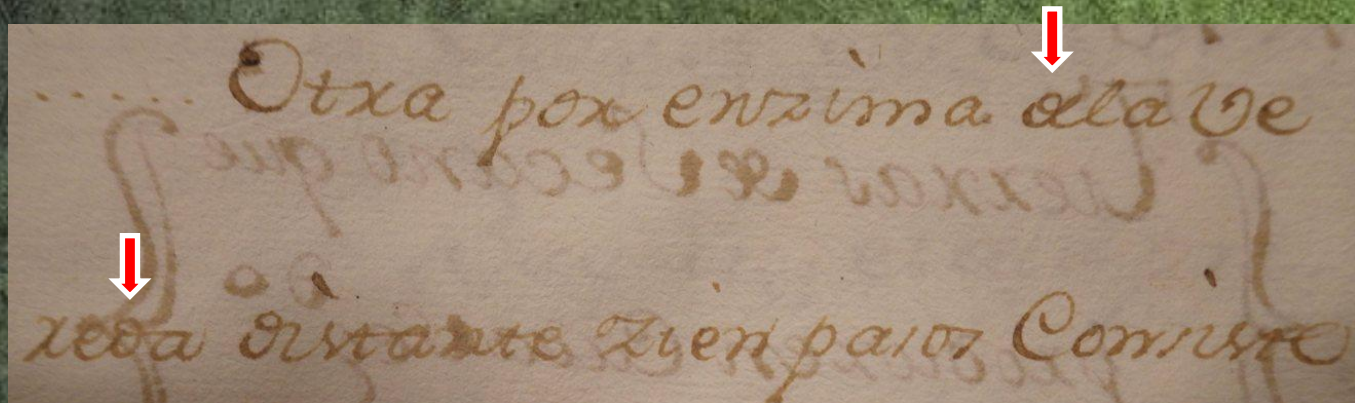 ..... Otra por enzima dela Ve
reda distante zien pasos Consiste